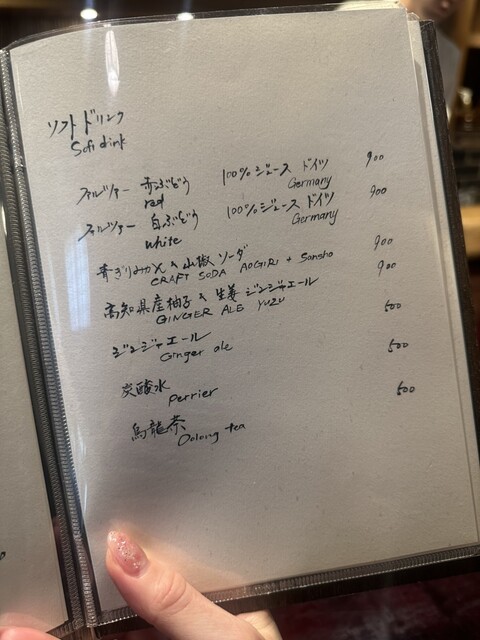 ソフトドリンク
Soft dink
ファルツァー 赤ぶどう 100%ジュース ドイツ 900
red Germany
ファルツァー 白ぶどう 100%ジュース ドイツ 900
white Germany
青ぎりみかん × 山椒 ソーダ 900
CRAFT SODA AOGIRI + Sansho
高知県産柚子 × 生姜 ジンジャエール 900
GINGER ALE YUZU
ジンジャエール 600
Ginger ale
炭酸水 500
perrier
烏龍茶 600
Oolong tea